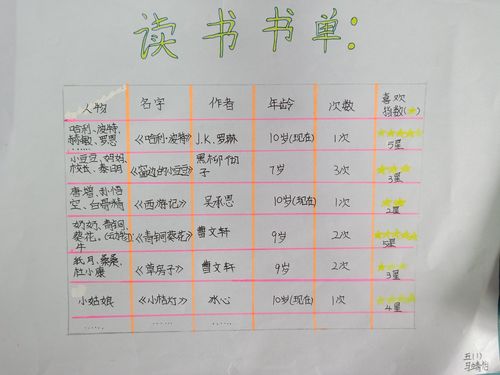 读书书单:
人物 名字 作者 年龄 次数 喜欢指数(★)
哈利、波特、赫敏、罗恩 …… 《哈利·波特》 J.K.罗琳 10岁(现在) 1次 5星
小豆豆、 校长、泰明 《窗边的小豆豆》 黑柳彻子 7岁 3次 3星
唐增、孙悟空、白骨精 《西游记》 吴承恩 10岁(现在) 1次 2星
奶奶、青铜、葵花、 牛 《青铜葵花》 曹文轩 9岁 2次 5星
纸月、桑桑、杜小康 《草房子》 曹文轩 9岁 2次 3星
小姑娘 《小桔灯》 冰心 10岁(现在) 1次 4星
…… …… …… …… ……
五(1)